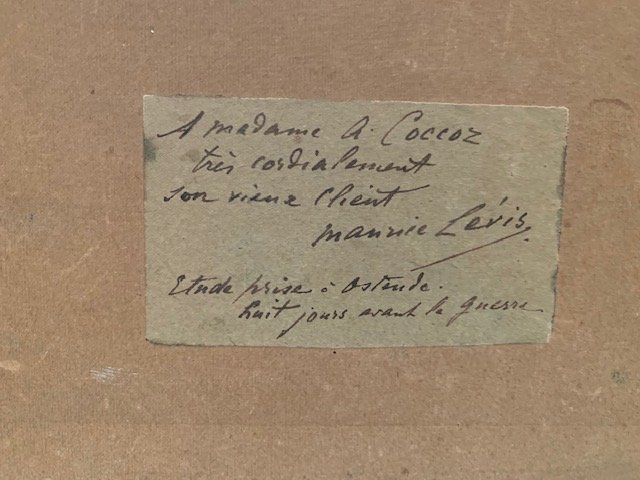 A madame A. Coccoz
très cordialement
son vieux Client
maurice Lévis.
Etude prise à Ostende.
huit jours avant la guerre